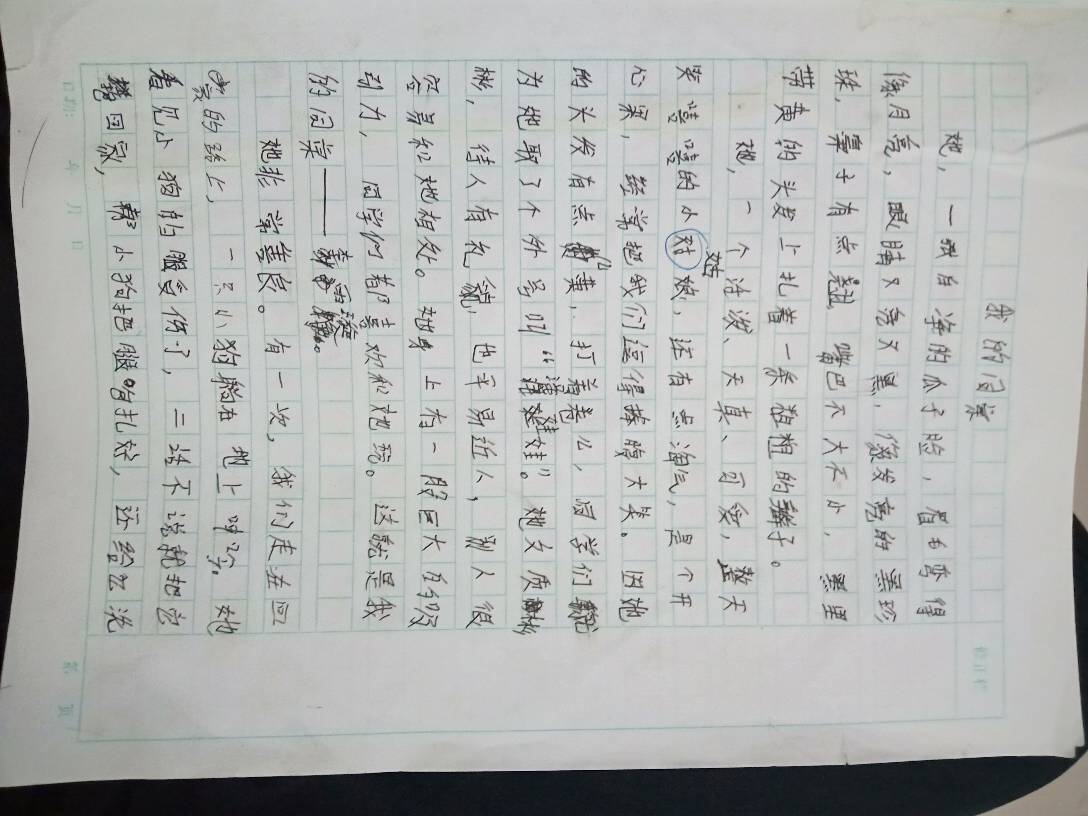 我的同桌
她，一张白净的瓜子脸，眉毛弯得
像月亮，眼睛又亮又黑，像发亮的黑珍
珠，鼻子有点翘。嘴巴不大不小，黑里
带黄的头发上扎着一条粗粗的辫子。
她，一个活泼、天真、可爱，整天
笑嘻嘻的小姑娘，还有点淘气，是个开
心果，经常把我们逗得捧腹大笑。因她
的头发有点黄、打着卷儿，同学们就
为她取了个外号叫“洋娃娃”。她文质彬
彬，待人有礼貌，也平易近人，别人很
容易和她相处。她身上有一股巨大的吸
引力，同学们都喜欢和她玩。这就是我
的同桌——
她非常善良。有一次，我们走在回
家的路上，一只小狗躺在地上叫个。她
看见小狗的腿受伤了，二话不说就把它
抱回家，帮小狗把腿包扎好，还给它洗
年 月 日
第 页